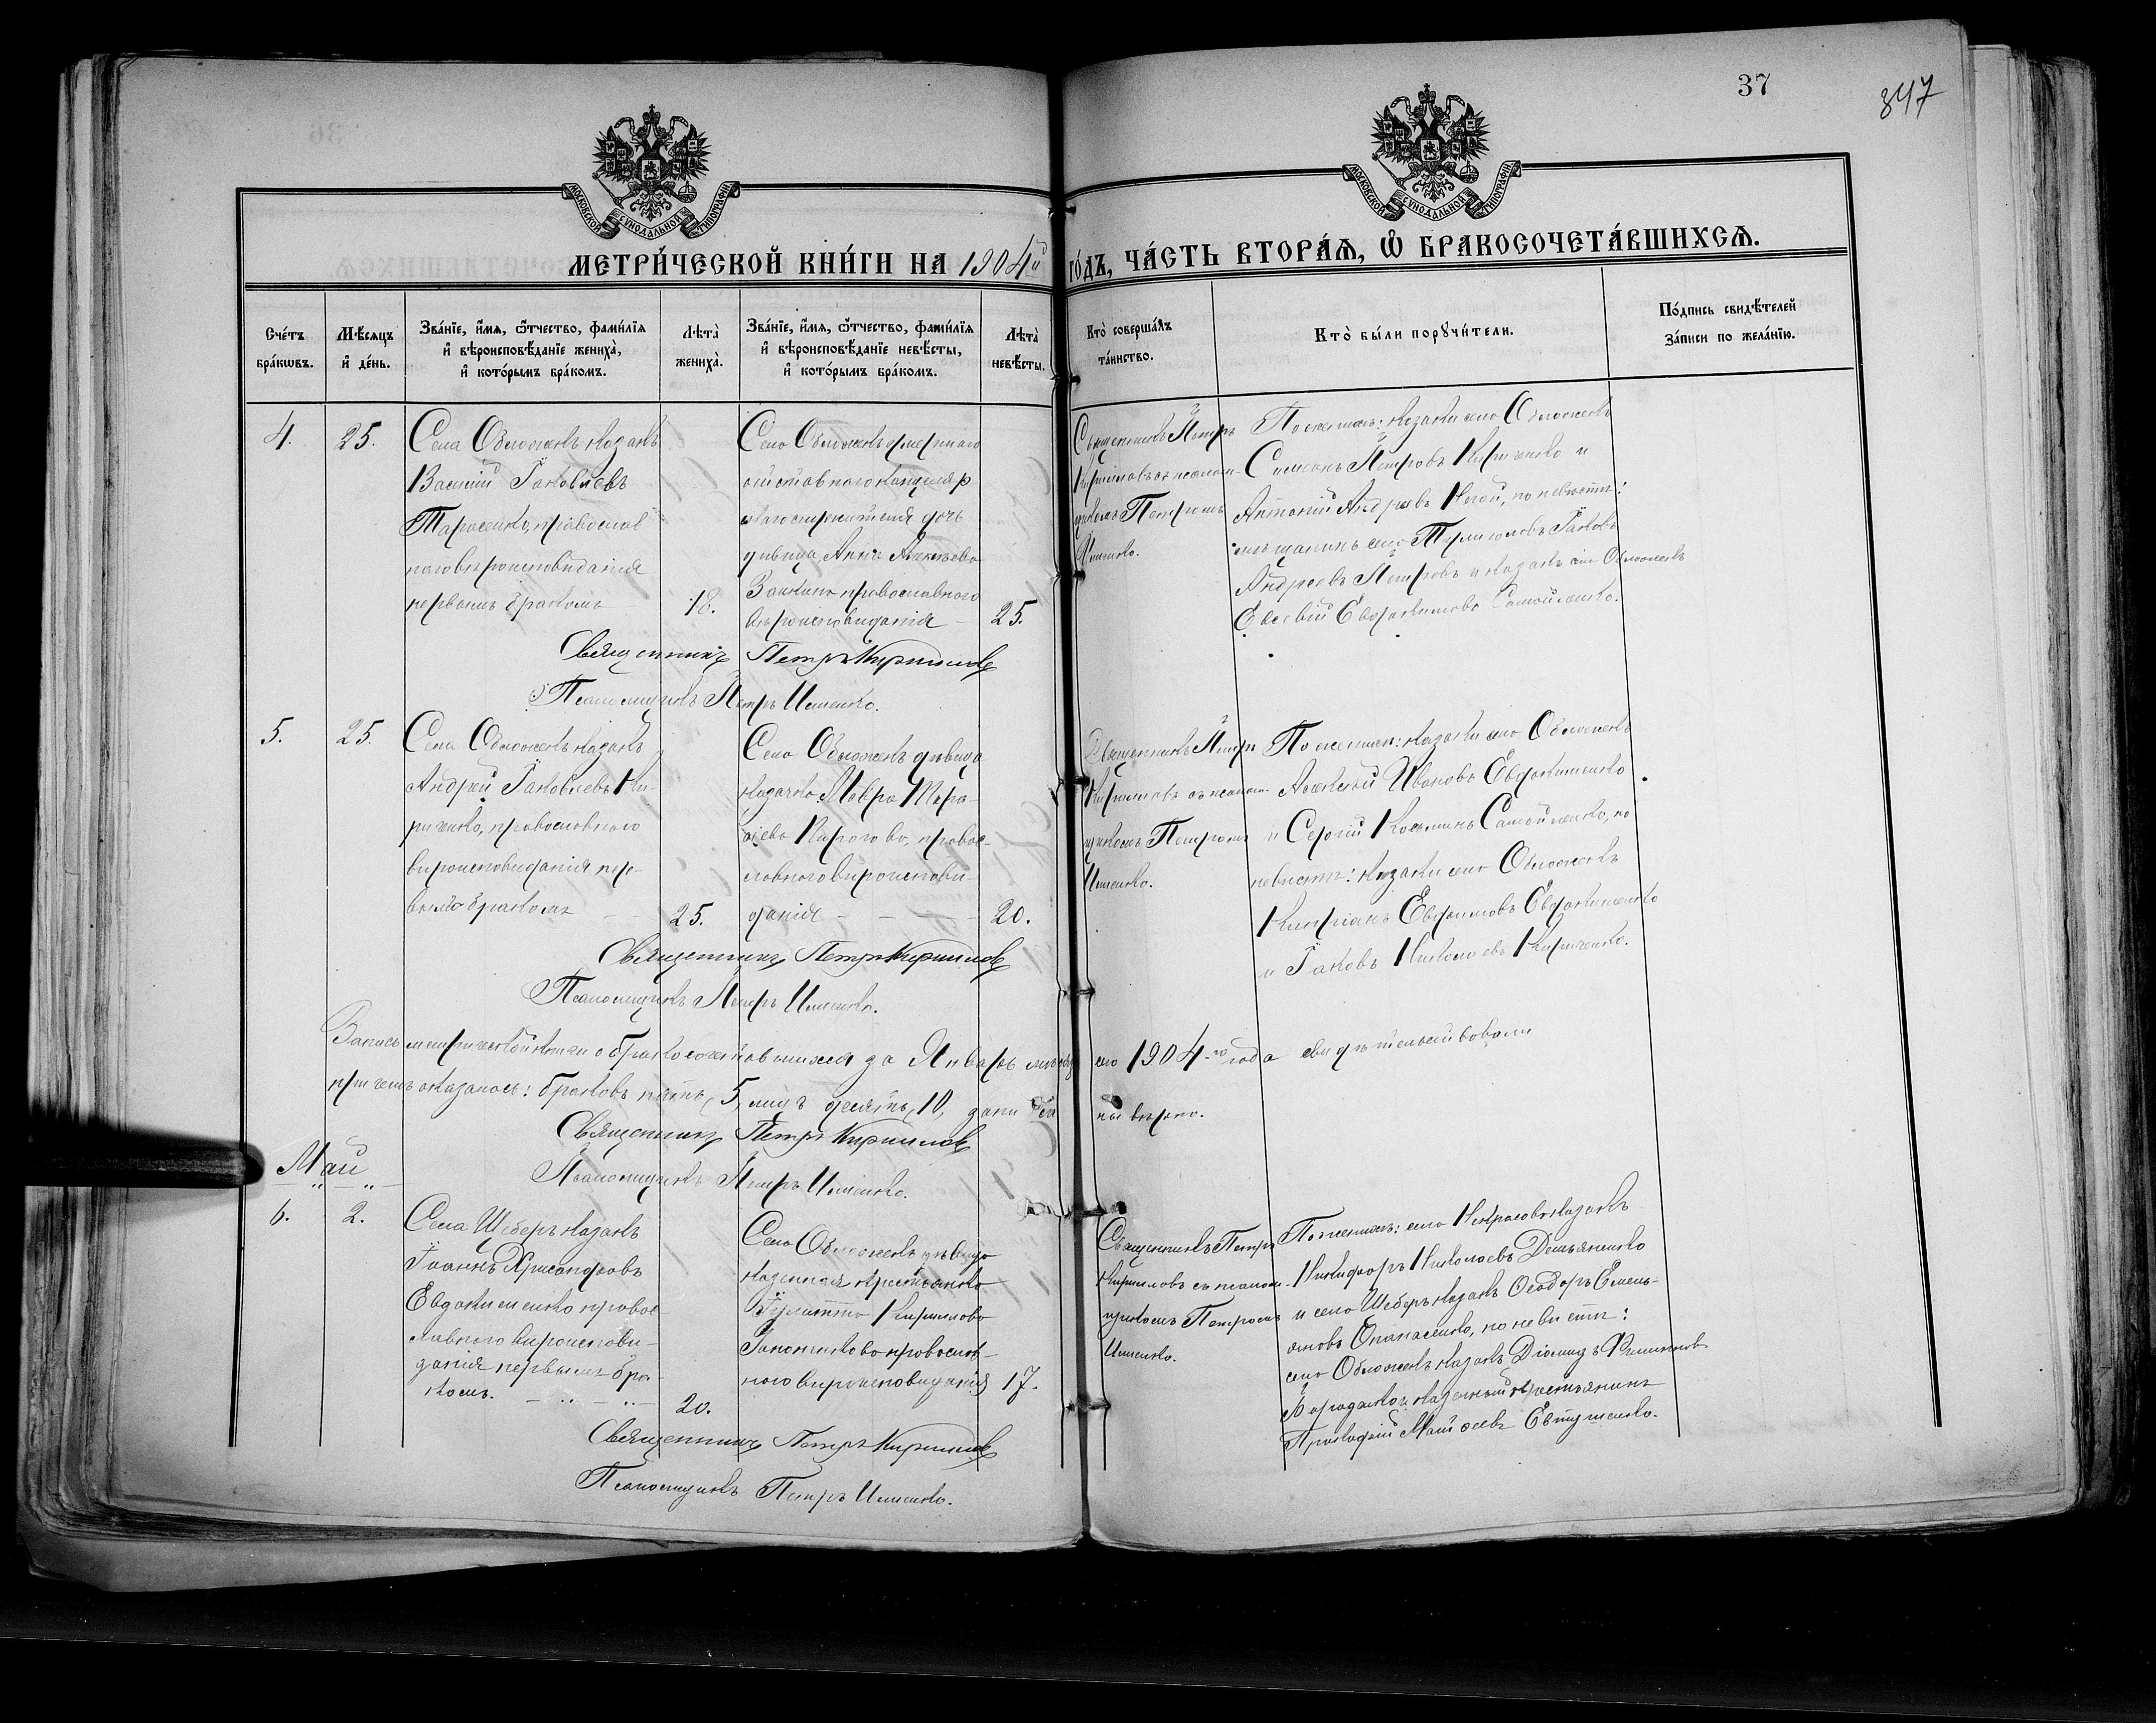 37
847
МОСКОВСКОЙ СѴНОДАЛЬНОЙ ТИПОГРАФІИ
МОСКОВСКОЙ СѴНОДАЛЬНОЙ ТИПОГРАФІИ
МЕТРИ́ЧЕСКОЙ КНИ́ГИ НА 1904й ГО́ДЪ, ЧА́СТЬ ВТОРА́Ѧ, Ѡ҆ БРАКОСОЧЕТА́ВШИХСѦ.
Сче́тъ бра́кѡвъ.
Мѣ́сѧцъ и҆ де́нь.
Зва́нїе, и҆́мѧ, ѻ҆́тчество, фами́лїѧ и҆ вѣроисповѣ́данїе жениха̀, и҆ кото́рымъ бра́комъ.
Лѣта̀ жениха̀.
Зва́нїе, и҆́мѧ, ѻ҆́тчество, фами́лїѧ и҆ вѣроисповѣ́данїе невѣ́сты, и҆ кото́рымъ бра́комъ.
Лѣта̀ невѣ́сты.
Кто̀ соверша́лъ та́инство.
Кто̀ бы́ли порꙋчи́тели.
По́дпись свидѣ́телей за́писи по жела́нїю.
4.
25.
Села Обложекъ казакъ
Василій Іаковлевъ
Тарасенко, православ
наго вѣроисповѣданія
первымъ бракомъ
18.
Села Обложекъ умершаго
отставного канцеляр
скаго служителя дочь
дѣвица Анна Алексѣева
православнаго
вѣроисповѣданія
25.
Священникъ Петръ
Кирилловъ съ псалом-
щикомъ Петромъ
По женихѣ: казаки села Обложекъ
Симеонъ Петровъ Кириченко и
Антоній Андреевъ по невѣстѣ:
мѣщанинъ села Іаковъ
Андреевъ Петровъ и казакъ села Обложекъ
Евсевій Евдокимовъ Самойленко.
Священникъ Петръ Кирилловъ
Псаломщикъ Петръ Ильченко.
5.
25.
Села Обложекъ казакъ
Андрей Іаковлевъ Ки-
риченко, православнаго
вѣроисповѣданія пер-
вымъ бракомъ
25.
Села Обложекъ дѣвица
казачка Мавра Тара-
сіева Пирогова, правос-
лавнаго вѣроисповѣ-
данія
20.
Священникъ Петръ
Кирилловъ съ псалом-
щикомъ Петромъ
По женихѣ: казаки села Обложекъ
Алексѣй Ивановъ Евдокименко
и Сергій Косьминъ Самойленко, по
невѣстѣ: казаки села Обложекъ
Кипріанъ Евфимовъ Евдокименко
и Іаковъ Николаевъ Кириченко.
Священникъ Петръ Кирилловъ
Псаломщикъ Петръ Ильченко.
Запись метрической книги о бракосочетавшихся за Январь мѣсяцъ сего 1904-го года свидѣтельствовали
причемъ оказалось: браковъ пять, 5, лицъ десять, 10, записаны вѣрно.
Священникъ Петръ Кирилловъ
Псаломщикъ Петръ Ильченко.
Май
6.
2.
Села Шеберъ казакъ
Іоаннъ Хрисанфовъ
Евдокименко правос-
лавнаго вѣроисповѣ-
данія первымъ бра-
комъ.
20.
Села Обложекъ дѣвица
казенная крестьянка
Іулитта Кириллова
православ-
наго вѣроисповѣданія
17.
Священникъ Петръ
Кирилловъ съ псалом-
щикомъ Петромъ
По женихѣ: села Некрасовъ казакъ
Никифоръ Николаевъ Демьяненко
и села Шеберъ казакъ Ѳеодоръ Емель-
яновъ Опанасенко, по невѣстѣ:
села Обложекъ казакъ Діомидъ Филипповъ
и казенный крестьянинъ
Матѳеевъ Евтушенко.
Священникъ Петръ Кирилловъ
Псаломщикъ Петръ Ильченко.